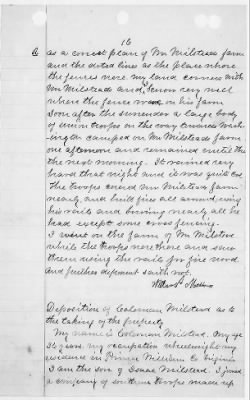 16
6 as a correct plan of Mr Milsteads farm
and the dotted lines as the place where
the fences were. my land corners with
Mr Milsteads and I know very well
where the fence was on his farm
Soon after the surrender a large body
of union troops on the way towards Wash-
ington camped on Mr Milsteads farm
one afternoon and remained until the
the next morning. It rained very
hard that night and it was quite cold
The troops covered Mr Milsteads farm
nearly, and built fires all around, using
his rails and burning nearly all he
had except some cross fencing.
I were on the farm of Mr Milstead
while the troops were there and saw
them using the rails for fire wood
and further deponent saith not.
Deposition of Coleman Milstead as to
the taking of the property
My name is Coleman Milstead. My age
36 years. my occupation wheelwright my
residence in Prince William Co Virginia
I am the son of Isaac Milstead. I joined
a company of southern troops made up